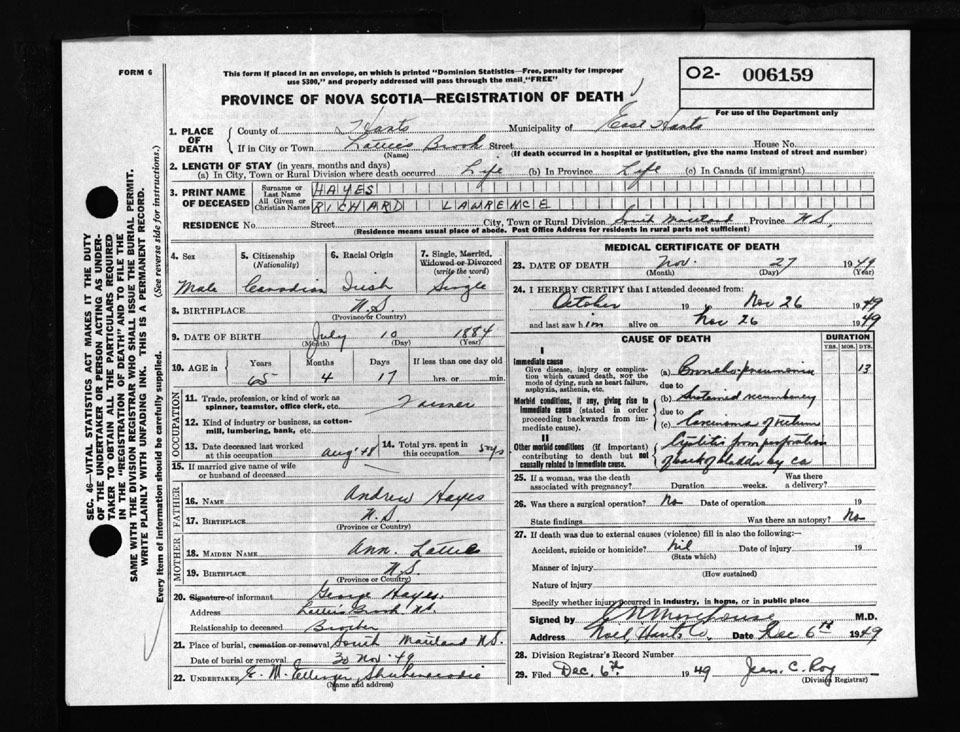 FORM 6
This form if placed in an envelope, on which is printed "Dominion Statistics—Free, penalty for improper
use $300," and properly addressed will pass through the mail "FREE"
O2- 006159
For use of the Department only
PROVINCE OF NOVA SCOTIA—REGISTRATION OF DEATH
1. PLACE OF DEATH
County of Hants Municipality of East Hants
If in City or Town Latties Brook Street House No.
(Name) (If death occurred in a hospital or institution, give the name instead of street and number)
2. LENGTH OF STAY (in years, months and days)
(a) In City, Town or Rural Division where death occurred Life (b) In Province Life (c) In Canada (if immigrant)
3. PRINT NAME OF DECEASED
Surname or Last Name HAYES
All Given or Christian Names RICHARD LAWRENCE
RESIDENCE No. Street City, Town or Rural Division South Maitland Province N.S.
(Residence means usual place of abode. Post Office Address for residents in rural parts not sufficient)
4. Sex
Male
5. Citizenship
(Nationality)
Canadian
6. Racial Origin
Irish
7. Single, Married,
Widowed or Divorced
(write the word)
Single
8. BIRTHPLACE N.S
(Province or Country)
9. DATE OF BIRTH July 10 1884
(Month) (Day) (Year)
10. AGE in
Years Months Days If less than one day old
65 4 17 hrs. or min.
OCCUPATION
11. Trade, profession, or kind of work as
spinner, teamster, office clerk, etc. Farmer
12. Kind of industry or business, as cotton-
mill, lumbering, bank, etc.
13. Date deceased last worked
at this occupation Aug '48
14. Total yrs. spent in
this occupation 50 yrs
15. If married give name of wife
or husband of deceased
FATHER
16. NAME Andrew Hayes
17. BIRTHPLACE N.S.
(Province or Country)
MOTHER
18. MAIDEN NAME Ann. Lattie
19. BIRTHPLACE N.S
(Province or Country)
20. Signature of informant George Hayes.
Address Latties Brook N.S.
Relationship to deceased Brother
21. Place of burial, cremation or removal South Maitland N.S.
Date of burial or removal 30 Nov '49
22. UNDERTAKER E. M. Ettinger Shubenacadie
(Name and address)
MEDICAL CERTIFICATE OF DEATH
23. DATE OF DEATH Nov. 27 1949
(Month) (Day) (Year)
24. I HEREBY CERTIFY that I attended deceased from:
October 19 Nov 26 1949
and last saw him alive on Nov 26 1949
CAUSE OF DEATH
DURATION
YRS. MOS. DYS.
I
Immediate cause
Give disease, injury or complica-
tion which caused death, not the
mode of dying, such as heart failure,
asphyxia, asthenia, etc.
(a) Broncho-pneumonia 13
due to
Morbid conditions, if any, giving rise to
immediate cause (stated in order
proceeding backwards from im-
mediate cause).
(b) Sustained recumbency
due to
(c) Carcinoma of rectum
II
Other morbid conditions (if important)
contributing to death but not
causally related to immediate cause.
Cystitis from perforation
of back of bladder by ca
25. If a woman, was the death
associated with pregnancy? Duration weeks. Was there
a delivery?
26. Was there a surgical operation? No Date of operation 19
State findings Was there an autopsy? No
27. If death was due to external causes (violence) fill in also the following:—
Accident, suicide or homicide? Nil Date of injury 19
(State which)
Manner of injury
(How sustained)
Nature of injury
Specify whether injury occurred in industry, in home, or in public place
Signed by M.D.
Address Noel Hants Co. Date Dec 6th 1949
28. Division Registrar's Record Number
29. Filed Dec. 6th 1949 Jean. C. Roy
(Division Registrar)
SEC. 46—VITAL STATISTICS ACT MAKES IT THE DUTY
OF THE UNDERTAKER OR PERSON ACTING AS UNDER-
TAKER TO OBTAIN ALL THE PARTICULARS REQUIRED
IN THE "REGISTRATION OF DEATH" AND TO FILE THE
SAME WITH THE DIVISION REGISTRAR WHO SHALL ISSUE THE BURIAL PERMIT.
WRITE PLAINLY WITH UNFADING INK. THIS IS A PERMANENT RECORD.
Every item of information should be carefully supplied. (See reverse side for instructions.)